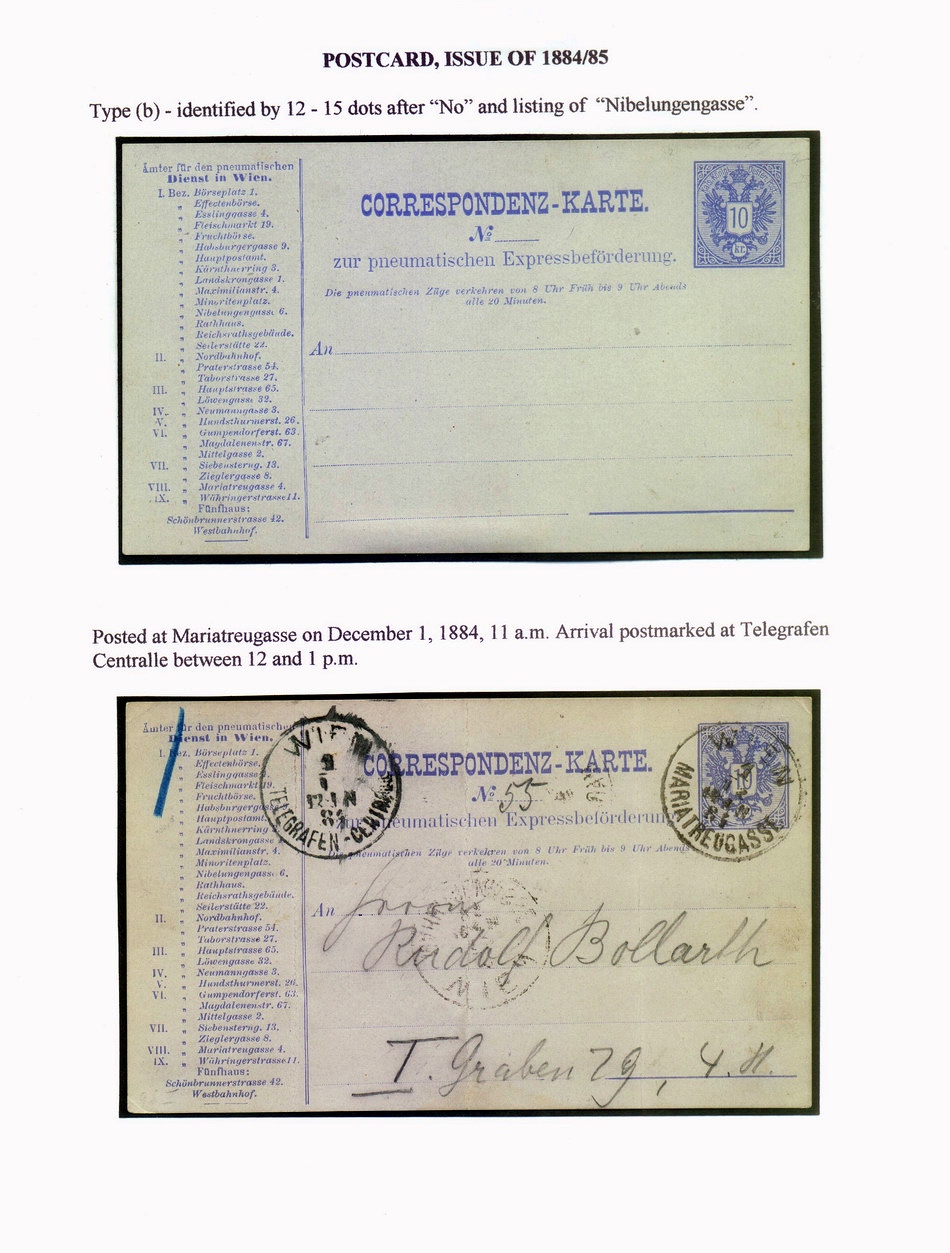 POSTCARD, ISSUE OF 1884/85
Type (b) - identified by 12 - 15 dots after “No” and listing of “Nibelungengasse”.
Ämter für den pneumatischen
Dienst in Wien.
I. Bez. Börseplatz 1.
„ Effectenbörse.
„ Esslinggasse 4.
„ Fleischmarkt 19.
„ Fruchtbörse.
„ Habsburgergasse 9.
„ Hauptpostamt.
„ Kärnthnerring 3.
„ Landskrongasse 1.
„ Maximilianstr. 4.
„ Minoritenplatz.
„ Nibelungengasse 6.
„ Rathhaus.
„ Reichsrathsgebäude.
„ Seilerstätte 22.
II. „ Nordbahnhof.
„ Praterstrasse 54.
„ Taborstrasse 27.
III. „ Hauptstrasse 65.
„ Löwengasse 32.
IV. „ Neumanngasse 3.
V. „ Hundsthurmerst. 26.
VI. „ Gumpendorferst. 63.
„ Magdalenenstr. 67.
„ Mittelgasse 2.
VII. „ Siebensterng. 13.
„ Zieglergasse 8.
VIII. „ Mariatreugasse 4.
IX. „ Währingerstrasse 11.
Fünfhaus:
Schönbrunnerstrasse 42.
Westbahnhof.
CORRESPONDENZ-KARTE.
No
zur pneumatischen Expressbeförderung.
Die pneumatischen Züge verkehren von 8 Uhr Früh bis 9 Uhr Abends
alle 20 Minuten.
An
10
kr.
Posted at Mariatreugasse on December 1, 1884, 11 a.m. Arrival postmarked at Telegrafen
Centralle between 12 and 1 p.m.
Ämter für den pneumatischen
Dienst in Wien.
I. Bez. Börseplatz 1.
„ Effectenbörse.
„ Esslinggasse 4.
„ Fleischmarkt 19.
„ Fruchtbörse.
„ Habsburgergasse
„ Hauptpostamt.
„ Kärnthnerring
„ Landskrongasse
„ Maximilianstr. 4.
„ Minoritenplatz.
„ Nibelungengasse 6.
„ Rathhaus.
„ Reichsrathsgebäude.
„ Seilerstätte 22.
II. „ Nordbahnhof.
„ Praterstrasse 54.
„ Taborstrasse 27.
III. „ Hauptstrasse 65.
„ Löwengasse 32.
IV. „ Neumanngasse 3.
V. „ Hundsthurmerst. 26.
VI. „ Gumpendorferst. 63.
„ Magdalenenstr. 67.
„ Mittelgasse 2.
VII. „ Siebensterng. 13.
„ Zieglergasse 8.
VIII. „ Mariatreugasse 4.
IX. „ Währingerstrasse 11.
Fünfhaus:
Schönbrunnerstrasse 42.
Westbahnhof.
WIEN
TELEGRAFEN-CENTRALE
CORRESPONDENZ-KARTE.
No 55
zur pneumatischen Expressbeförderung
Die pneumatischen Züge verkehren von 8 Uhr Früh bis 9 Uhr Abends
alle 20 Minuten.
WIEN
MARIATREUGASSE
10
An Herrn
Rudolf Bollarth
WIEN
I. Graben 29, 4. St.